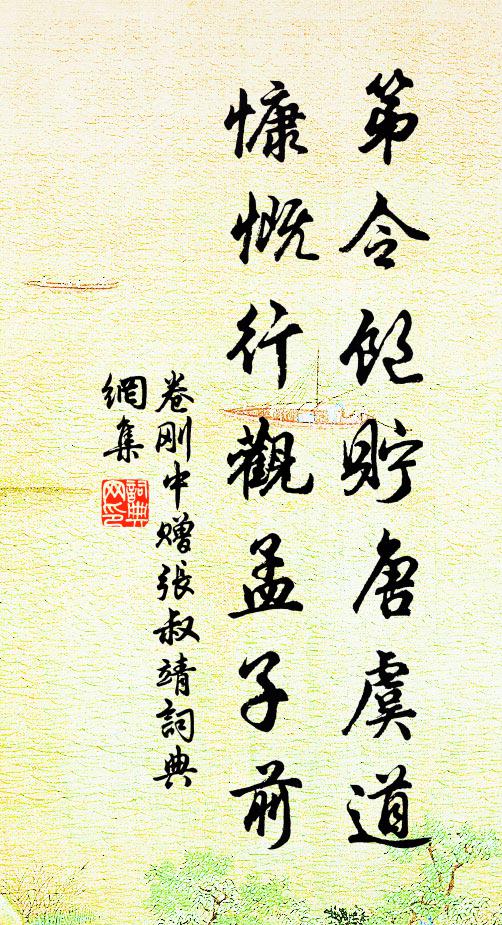 第令飽貯唐虞道
慷慨行觀孟子前
卷剛中贈張叔靖詞典
網集
詞典
网印